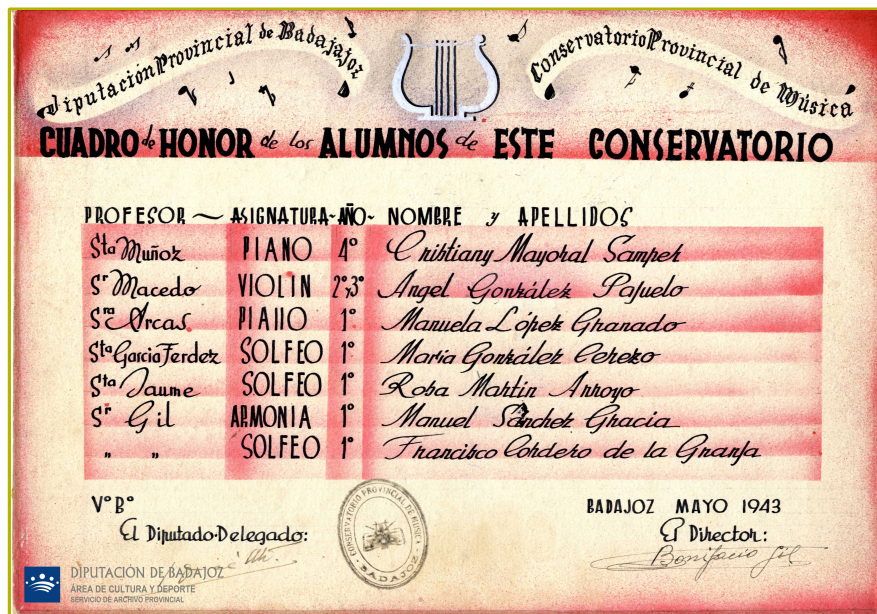 Diputación Provincial de Badajoz
Conservatorio Provincial de Música
CUADRO de HONOR de los ALUMNOS de ESTE CONSERVATORIO
PROFESOR ~ ASIGNATURA - AÑO - NOMBRE y APELLIDOS
Sta Muñoz PIANO 4º Cristiany Mayoral Samper
Sr Macedo VIOLIN 2º y 3º Angel González Pajuelo
Sra Orcas PIANO 1º Manuela López Granado
Sta Garcia Ferdez SOLFEO 1º Maria González Cerezo
Sta Jaume SOLFEO 1º Rosa Martin Arroyo
Sr Gil ARMONIA 1º Manuel Sánchez Gracia
" " SOLFEO 1º Francisco Cordero de la Granja
Vº Bº
El Diputado-Delegado:
CONSERVATORIO PROVINCIAL DE MUSICA - BADAJOZ
BADAJOZ MAYO 1943
El Director:
Bonifacio Gil
DIPUTACIÓN DE BADAJOZ
ÁREA DE CULTURA Y DEPORTE
SERVICIO DE ARCHIVO PROVINCIAL